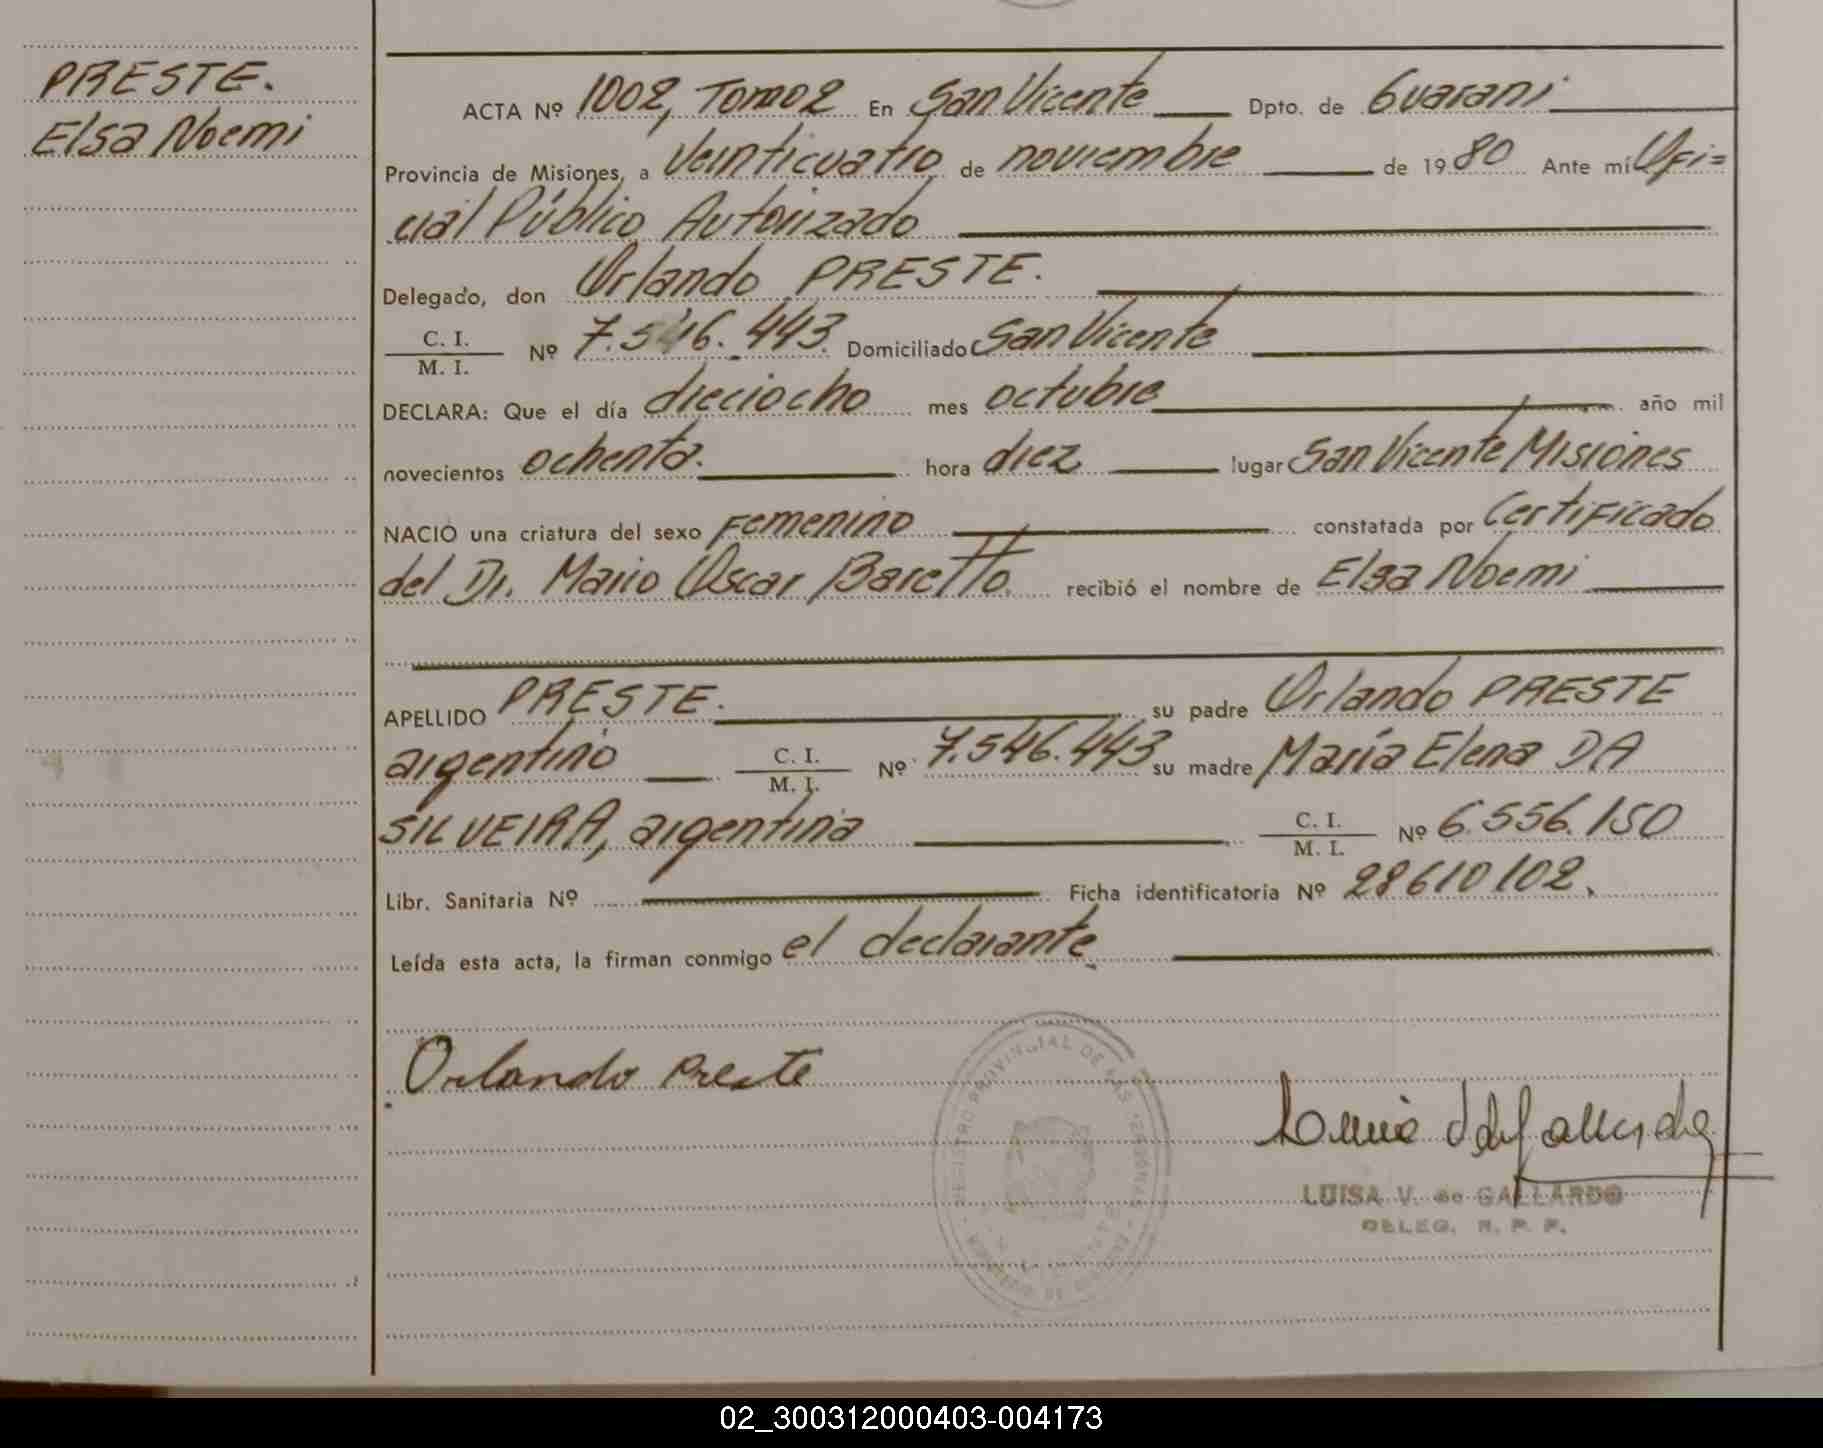 PRESTE.
Elsa Noemi
ACTA Nº 1002, Tomo 2 En San Vicente Dpto. de Guarani
Provincia de Misiones, a Veinticuatro de noviembre de 1980 Ante mí Ofi=
cial Público Autorizado
Delegado, don Orlando PRESTE.
C. I.
M. I. Nº 7.546.443. Domiciliado San Vicente
DECLARA: Que el día dieciocho mes octubre año mil
novecientos ochenta. hora diez lugar San Vicente Misiones
NACIÓ una criatura del sexo Femenino constatada por Certificado
del Dr. Mario Oscar Baretto. recibió el nombre de Elsa Noemi
APELLIDO PRESTE. su padre Orlando PRESTE
argentino C. I. M. I. Nº 7.546.443 su madre María Elena DA
SILVEIRA, argentina C. I. M. I. Nº 6.556.150
Libr. Sanitaria Nº Ficha identificatoria Nº 28610102.
Leída esta acta, la firman conmigo el declarante
Orlando Preste
REGISTRO PROVINCIAL DE LAS PERSONAS
LUISA V. de GALLARDO
DELEG. R. P. P.
02_300312000403-004173